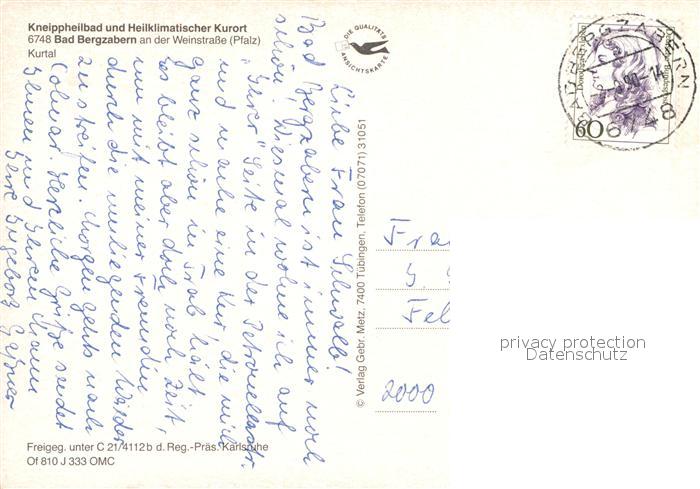 Kneippheilbad und Heilklimatischer Kurort
6748 Bad Bergzabern an der Weinstraße (Pfalz)
Kurtal
DIE QUALITÄTS
ANSICHTSKARTE
BAD BERGZABERN
6748
60
Liebe Frau Schwalb!
Bad Bergzabern ist immer noch
schön. Diesmal wohne ich auf
"Ihrer" Seite in der Petronellastr.
und mache eine Kur, die mich
ganz schön in Trab hält.
Es bleibt aber doch noch Zeit,
um mit meiner Freundin
durch die umliegenden Wälder
zu streifen. Morgen gehts nach
Colmar. Herzliche Grüße sendet
Ihnen und Ihrem Mann
Ihre Ingeborg
© Verlag Gebr. Metz, 7400 Tübingen, Telefon (07071) 31051
Fra
Fel
2000
privacy protection
Datenschutz
Freigeg. unter C 21/4112 b d. Reg.-Präs. Karlsruhe
Of 810 J 333 OMC